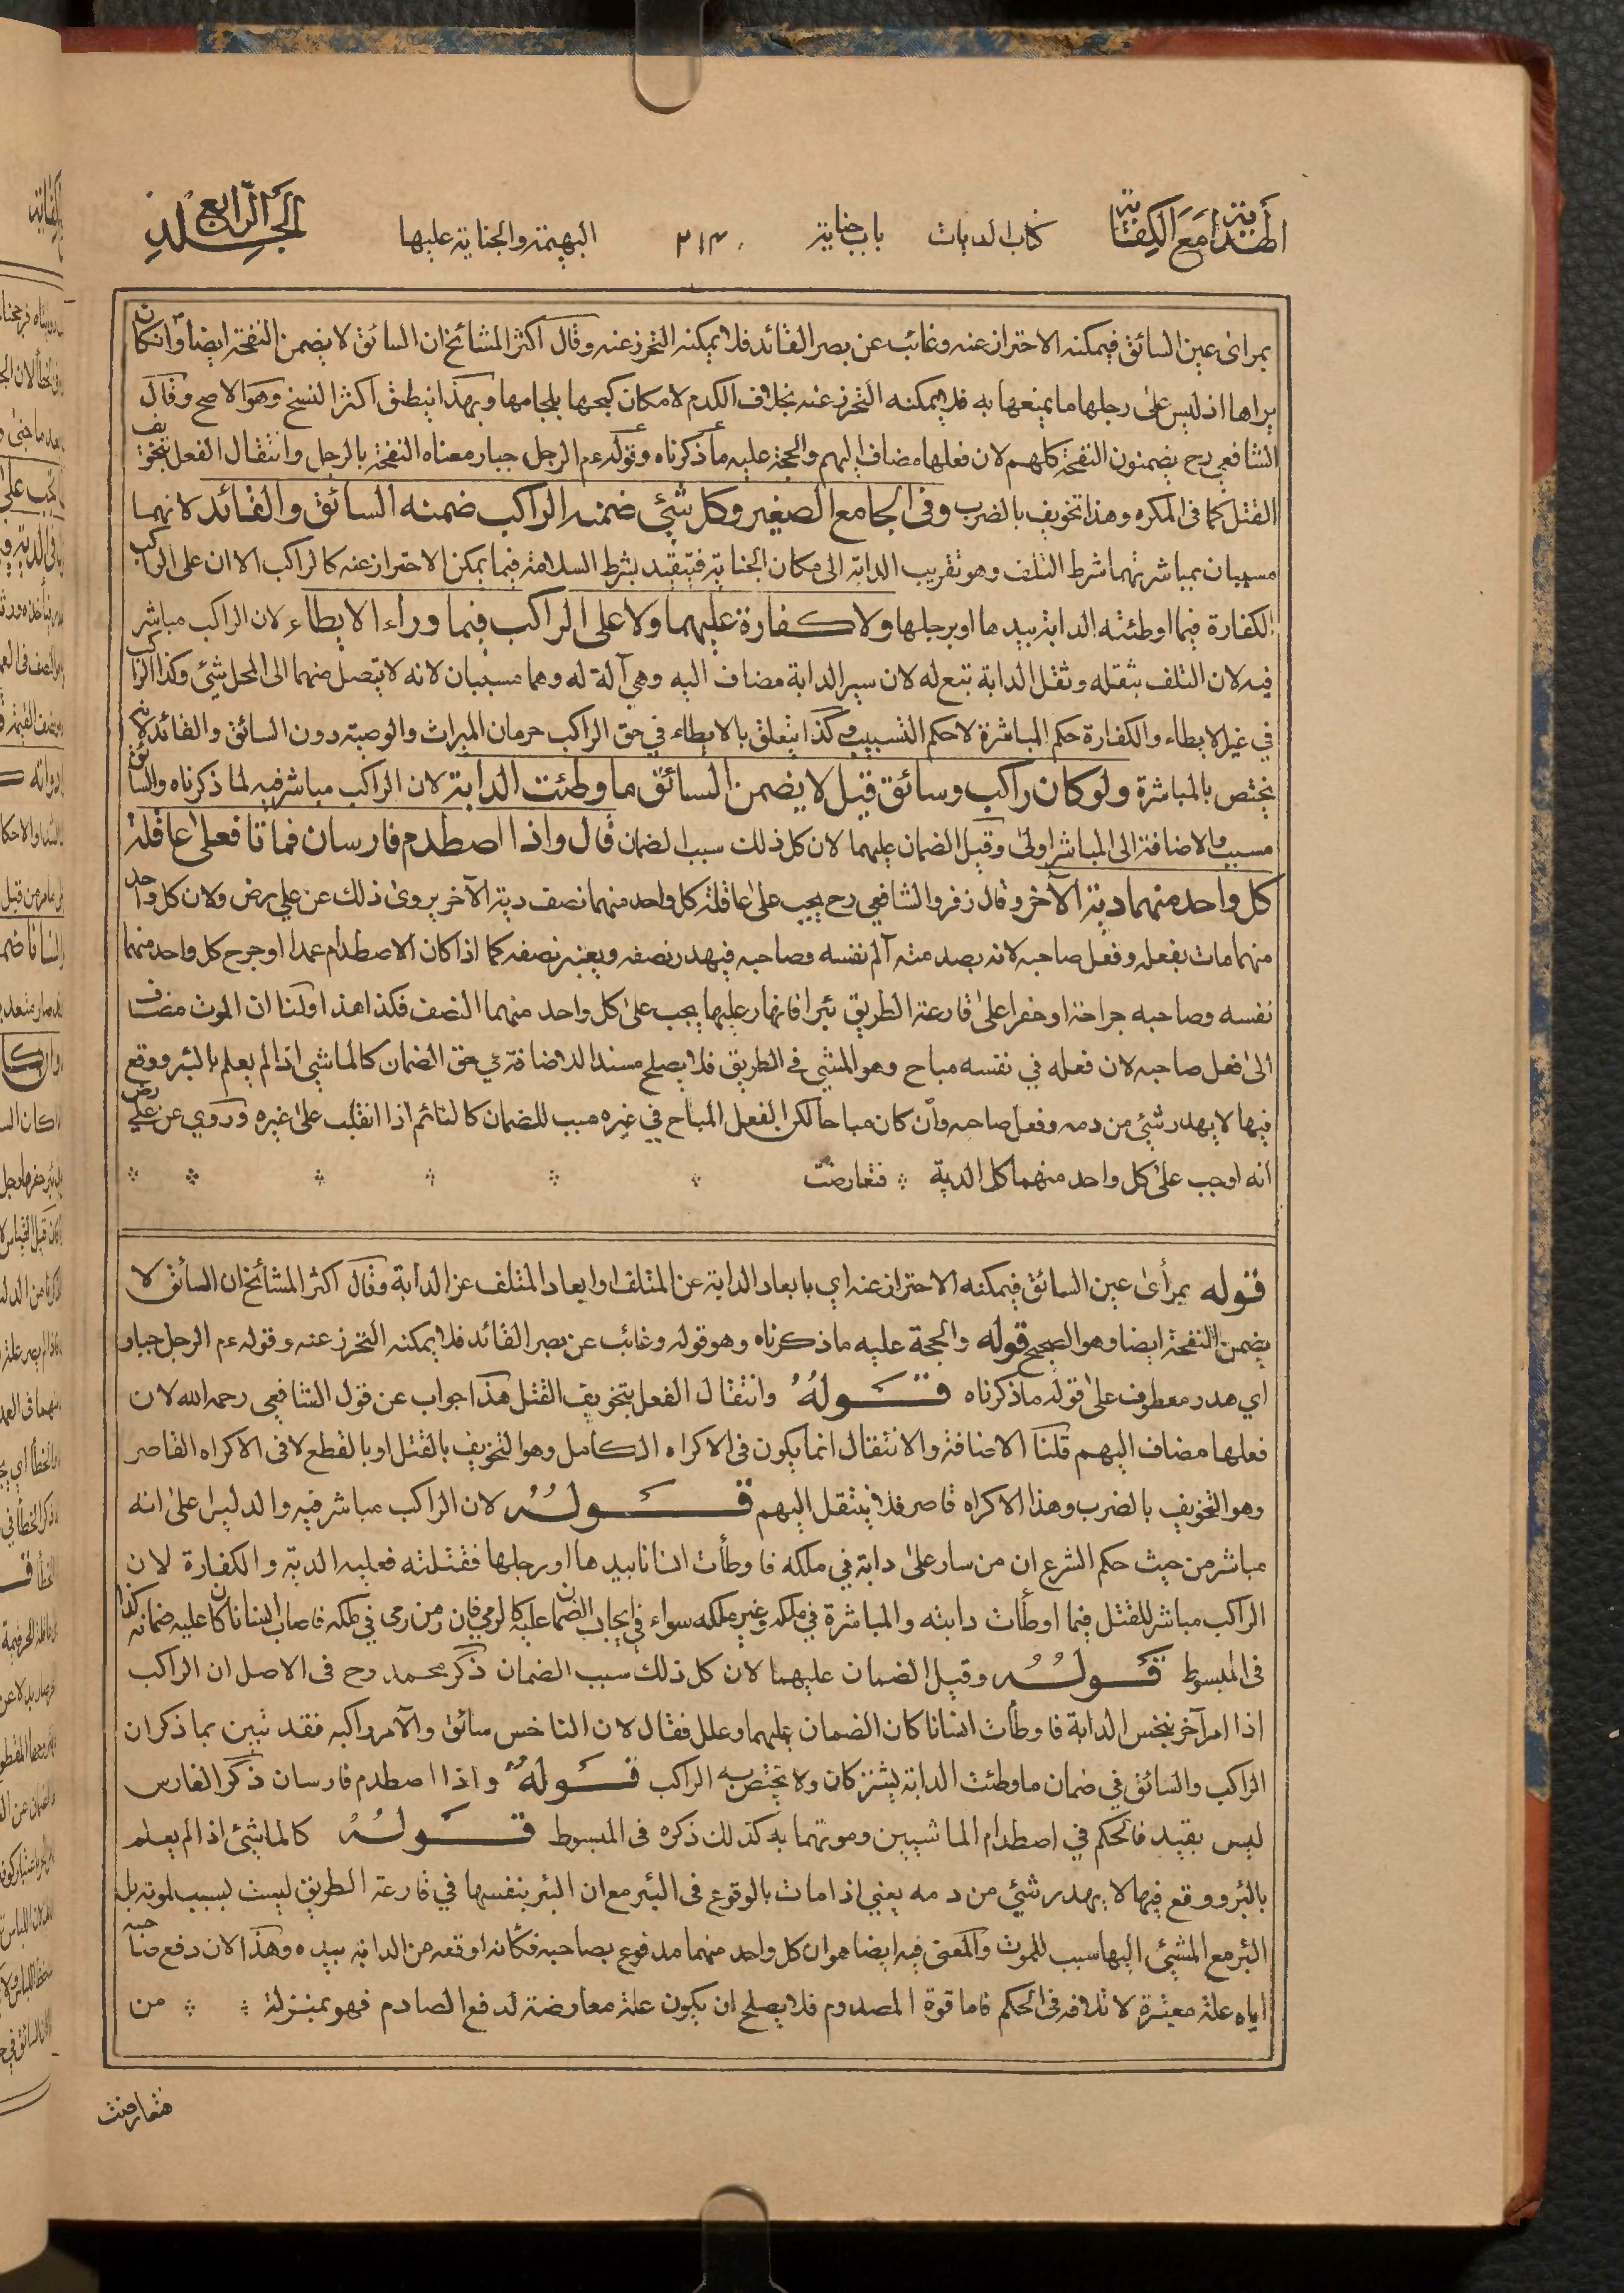 الهداية مع الكفاية كتاب الديات باب جناية ٣١٣ البهيمة والجناية عليها المجلد الرابع
بمرائ عين السائق فيمكنه الاحتراز عنه وغائب عن بصر القائد فلا يمكنه التحرز عنه وقال اكثر المشائخ ان السائق لا يضمن النفحة ايضا وان كان
يراها اذ ليس على رجلها ما يمنعها به فلا يمكنه التحرز عنه بخلاف الكدم لامكان كبحها بلجامها وبهذا ينطق اكثر النسخ وهو الاصح وقال
الشافعي رح يضمنون النفحة كلهم لان فعلها مضاف اليهم والحجة عليه ما ذكرناه وقوله عم الرجل جبار معناه النفحة بالرجل وانتقال الفعل بتخويف
القتل كما في المكره وهذا تخويف بالضرب وفي الجامع الصغير وكل شئ ضمنه الراكب ضمنه السائق والقائد لانهما
مسببان بمباشرتهما شرط التلف وهو تقريب الدابة الى مكان الجناية فيتقيد بشرط السلامة فيما يمكن الاحتراز عنه كالراكب الا ان على الراكب
الكفارة فيما اوطئته الدابة بيدها او برجلها ولا كفارة عليهما ولا على الراكب فيما وراء الايطاء لان الراكب مباشر
فيه لان التلف بثقله وثقل الدابة تبع له لان سير الدابة مضاف اليه وهي آلة له وهما مسببان لانه لا يتصل منهما الى المحل شئ وكذا الراكب
في غير الايطاء والكفارة حكم المباشرة لا حكم التسبيب وكذا يتعلق بالايطاء في حق الراكب حرمان الميراث والوصية دون السائق والقائد لانه
يختص بالمباشرة ولو كان راكب وسائق قيل لا يضمن السائق ما وطئت الدابة لان الراكب مباشر فيه لما ذكرناه والسائق
مسبب والاضافة الى المباشر اولى وقيل الضمان عليهما لان كل ذلك سبب الضمان قال واذا اصطدم فارسان فماتا فعلى عاقلة
كل واحد منهما دية الآخر وقال زفر والشافعي رح يجب على عاقلة كل واحد منهما نصف دية الآخر يروى ذلك عن علي رض ولان كل واحد
منهما مات بفعله وفعل صاحبه لانه بصدمته آلم نفسه وصاحبه فيهدر نصفه ويعتبر نصفه كما اذا كان الاصطدام عمدا او جرح كل واحد منهما
نفسه وصاحبه جراحة او حفرا على قارعة الطريق بئرا فانهار عليهما يجب على كل واحد منهما النصف فكذا هذا ولنا ان الموت مضاف
الى فعل صاحبه لان فعله في نفسه مباح وهو المشي في الطريق فلا يصلح مسندا للاضافة في حق الضمان كالماشي اذا لم يعلم بالبئر ووقع
فيها لا يهدر شئ من دمه وفعل صاحبه وان كان مباحا لكن الفعل المباح في غيره سبب للضمان كالنائم اذا انقلب على غيره وروي عن علي رض
انه اوجب على كل واحد منهما كل الدية فتعارضت
قوله بمرأى عين السائق فيمكنه الاحتراز عنه اي بابعاد الدابة عن المتلف او ابعاد المتلف عن الدابة وقال اكثر المشائخ ان السائق لا
يضمن النفحة ايضا وهو الصحيح قوله والحجة عليه ما ذكرناه وهو قوله وغائب عن بصر القائد فلا يمكنه التحرز عنه وقوله عم الرجل جبار
اي هدر معطوف على قوله ما ذكرناه قوله وانتقال الفعل بتخويف القتل هذا جواب عن قول الشافعي رحمه الله لان
فعلها مضاف اليهم قلنا الاضافة والانتقال انما يكون في الاكراه الكامل وهو التخويف بالقتل او بالقطع لا في الاكراه القاصر
وهو التخويف بالضرب وهذا الاكراه قاصر فلا ينتقل اليهم قوله لان الراكب مباشر فيه والدليل على انه
مباشر من حيث حكم الشرع ان من سار على دابة في ملكه فاوطأت انسانا بيدها او رجلها فقتلته فعليه الدية والكفارة لان
الراكب مباشر للقتل فيما اوطأت دابته والمباشرة في ملكه وغير ملكه سواء في ايجاب الضمان عليه كالرمي فان من رمى في ملكه فاصاب انسانا كان عليه ضمانه كذا
في المبسوط قوله وقيل الضمان عليهما لان كل ذلك سبب الضمان ذكر محمد رح في الاصل ان الراكب
اذا امر آخر بنخس الدابة فاوطأت انسانا كان الضمان عليهما وعلل فقال لان الناخس سائق والآمر راكب فقد تبين بما ذكر ان
الراكب والسائق في ضمان ما وطئت الدابة يشتركان ولا يختص به الراكب قوله واذا اصطدم فارسان ذكر الفارس
ليس بقيد فالحكم في اصطدام الماشيين وموتهما به كذلك ذكره في المبسوط قوله كالماشئ اذا لم يعلم
بالبئر ووقع فيها لا يهدر شئ من دمه يعني اذا مات بالوقوع في البئر مع ان البئر بنفسها في قارعة الطريق ليست بسبب لموته بل
البئر مع المشئ اليها سبب للموت والمعنى فيه ايضا هو ان كل واحد منهما مدفوع بصاحبه فكانه اوقعه من الدابة بيده وهذا لان دفع صاحبه
اياه علة معتبرة لاتلافه في الحكم فاما قوة المصدوم فلا يصلح ان يكون علة معارضة لدفع الصادم فهو بمنزلة من
فتعارضت